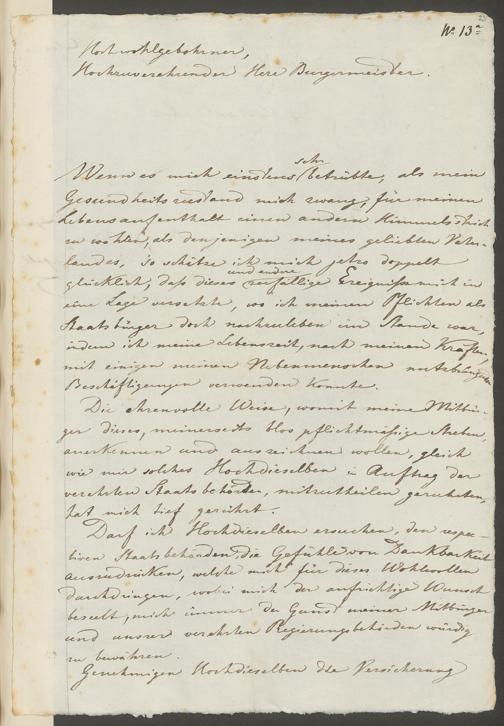 Nr. 13a
Hochwohlgebohrner,
Hochzuverehrender Herr Burgermeister.
sehr
Wenn es mich einstens betrübte, als mein
Gesundheitszustand mich zwang, für meinen
Lebensaufenthalt einen andern Himmelsstrich
zu wählen, als denjenigen meines geliebten Vater-
landes, so schätze ich mich jetzt doppelt
und andre
glücklich, daß dieses zufällige Ereignisse mich in
eine Lage versetzte, wo ich meinen Pflichten als
Staatsbürger doch nachzuleben im Stande war,
indem ich meine Lebenszeit, nach meinen Kräften,
mit einigen meinen Nebenmenschen nutzbringenden
Beschäftigungen verwenden konnte.
Die ehrenvolle Weise, womit meine Mitbür-
ger dieses, meinerseits blos pflichtmäßige Streben,
anerkennen und auszeichnen wollen, gleich
wie mir solches Hochdieselben in Auftrag der
verehrten Staatsbehörden, mitzutheilen geruheten,
hat mich tief gerührt.
Darf ich Hochdieselben ersuchen, den respec-
tiven Staatsbehörden, die Gefühle von Dankbarkeit
auszudrücken, welche mich für dieses Wohlwollen
durchdringen, wobei mich der aufrichtige Wunsch
beseelt, mich immer der Gunst meiner Mitbürger
und unsrer verehrten Regierungsbehörden würdig
zu bewähren.
Genehmigen Hochdieselben die Versicherung